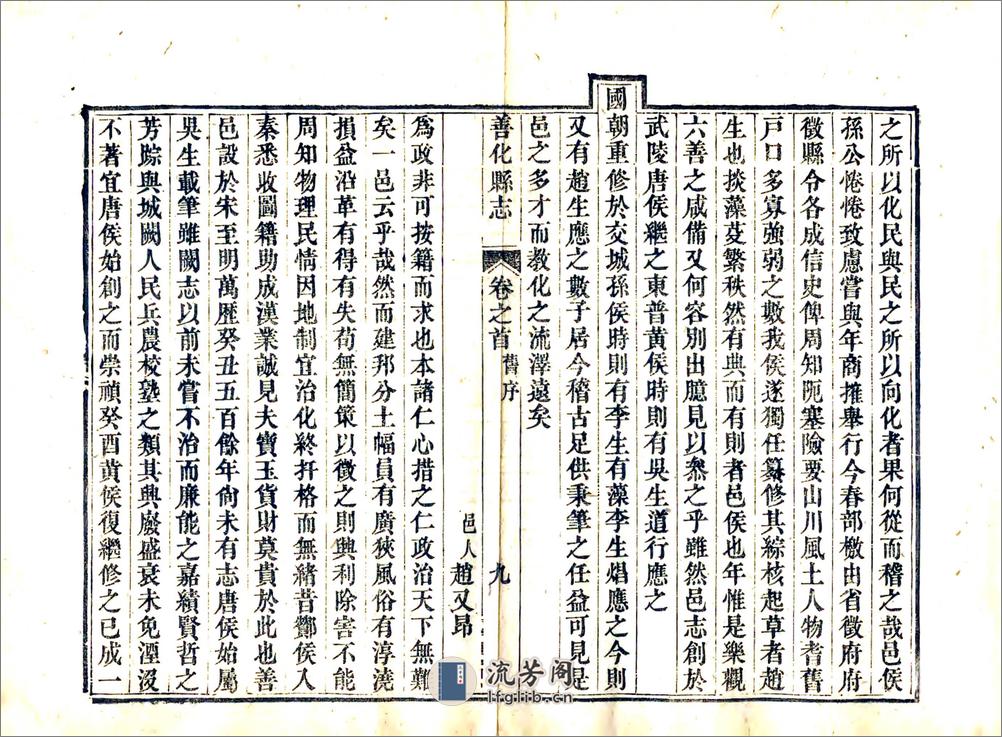 之所以化民與民之所以向化者果何從而稽之哉邑侯
孫公惓惓致慮嘗與年商搉舉行今春部檄出省徵府府
徵縣令各成信史俾周知阨塞險要山川風土人物耆舊
戸口多寡強弱之數我侯遂獨任纂修其綜核起草者趙
生也掞藻芟繁秩然有典而有則者邑侯也年惟是樂觀
六善之咸備又何容別出臆見以參之乎雖然邑志創於
武陵唐侯繼之東普黃侯時則有吳生道行應之
國朝重修於交城孫侯時則有李生有藻李生焻應之今則
又有趙生應之數子居今稽古足供秉筆之任益可見是
邑之多才而教化之流澤遠矣
善化縣志
卷之首 舊序
九
邑人趙又昂
爲政非可按籍而求也本諸仁心措之仁政治天下無難
矣一邑云乎哉然而建邦分土幅員有廣狹風俗有淳澆
損益沿革有得有失苟無簡策以徵之則興利除害不能
周知物理民情因地制宜治化終扞格而無緒昔酇侯入
秦悉收圖籍助成漢業誠見夫寶玉貨財莫貴於此也善
邑設於宋至明萬歷癸丑五百餘年尙未有志唐侯始屬
吳生載筆雖闕志以前未嘗不治而廉能之嘉績賢哲之
芳踪與城闕人民兵農校塾之類其興廢盛衰未免湮沒
不著宜唐侯始創之而崇禎癸酉黃侯復繼修之已成一
流芳阁
lfglib.cn